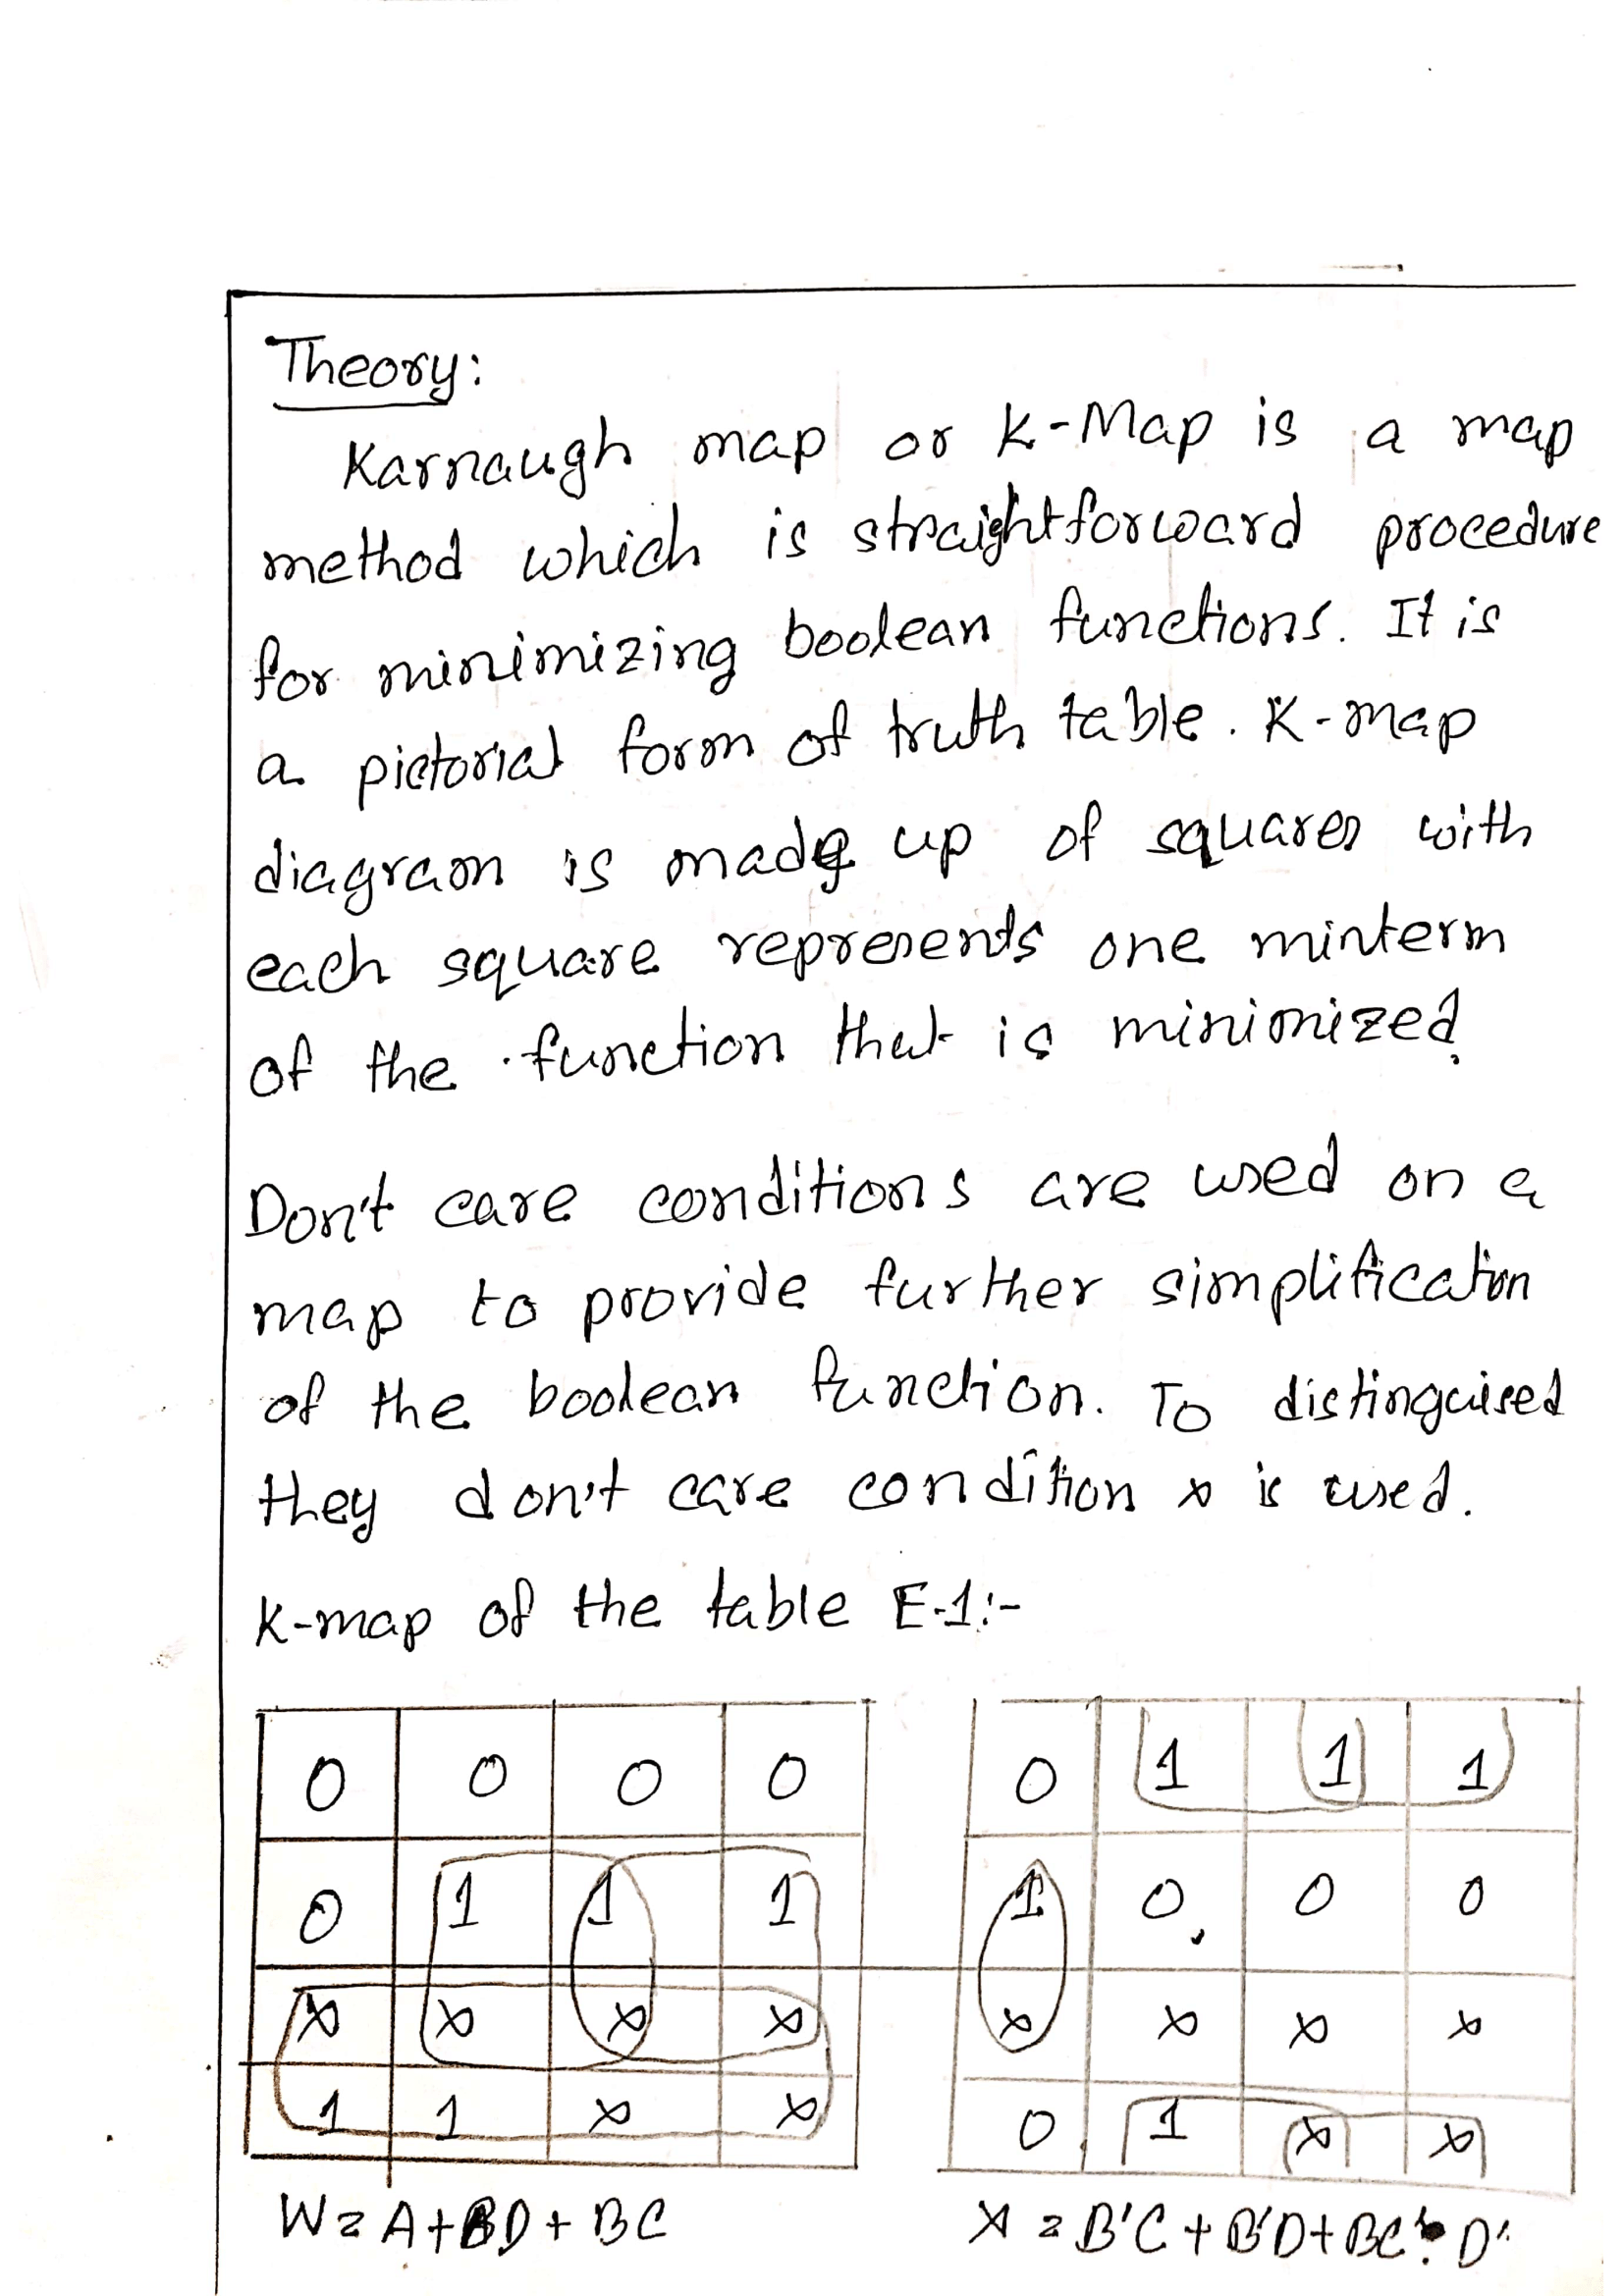 Theory:
Karnaugh map or K-Map is a map
method which is straightforward procedure
for minimizing boolean functions. It is
a pictorial form of truth table. K-map
diagram is made up of squares with
each square represents one minterm
of the function that is minimized.
Don't care conditions are used on a
map to provide further simplification
of the boolean function. To distinguised
they don't care condition x is used.
K-map of the table E-1:-
0 0 0 0 0 1 1 1
0 1 1 1 1 0 0 0
x x x x x x x x
1 1 x x 0 1 x x
W = A+BD+BC X = B'C+B'D+BC'D'